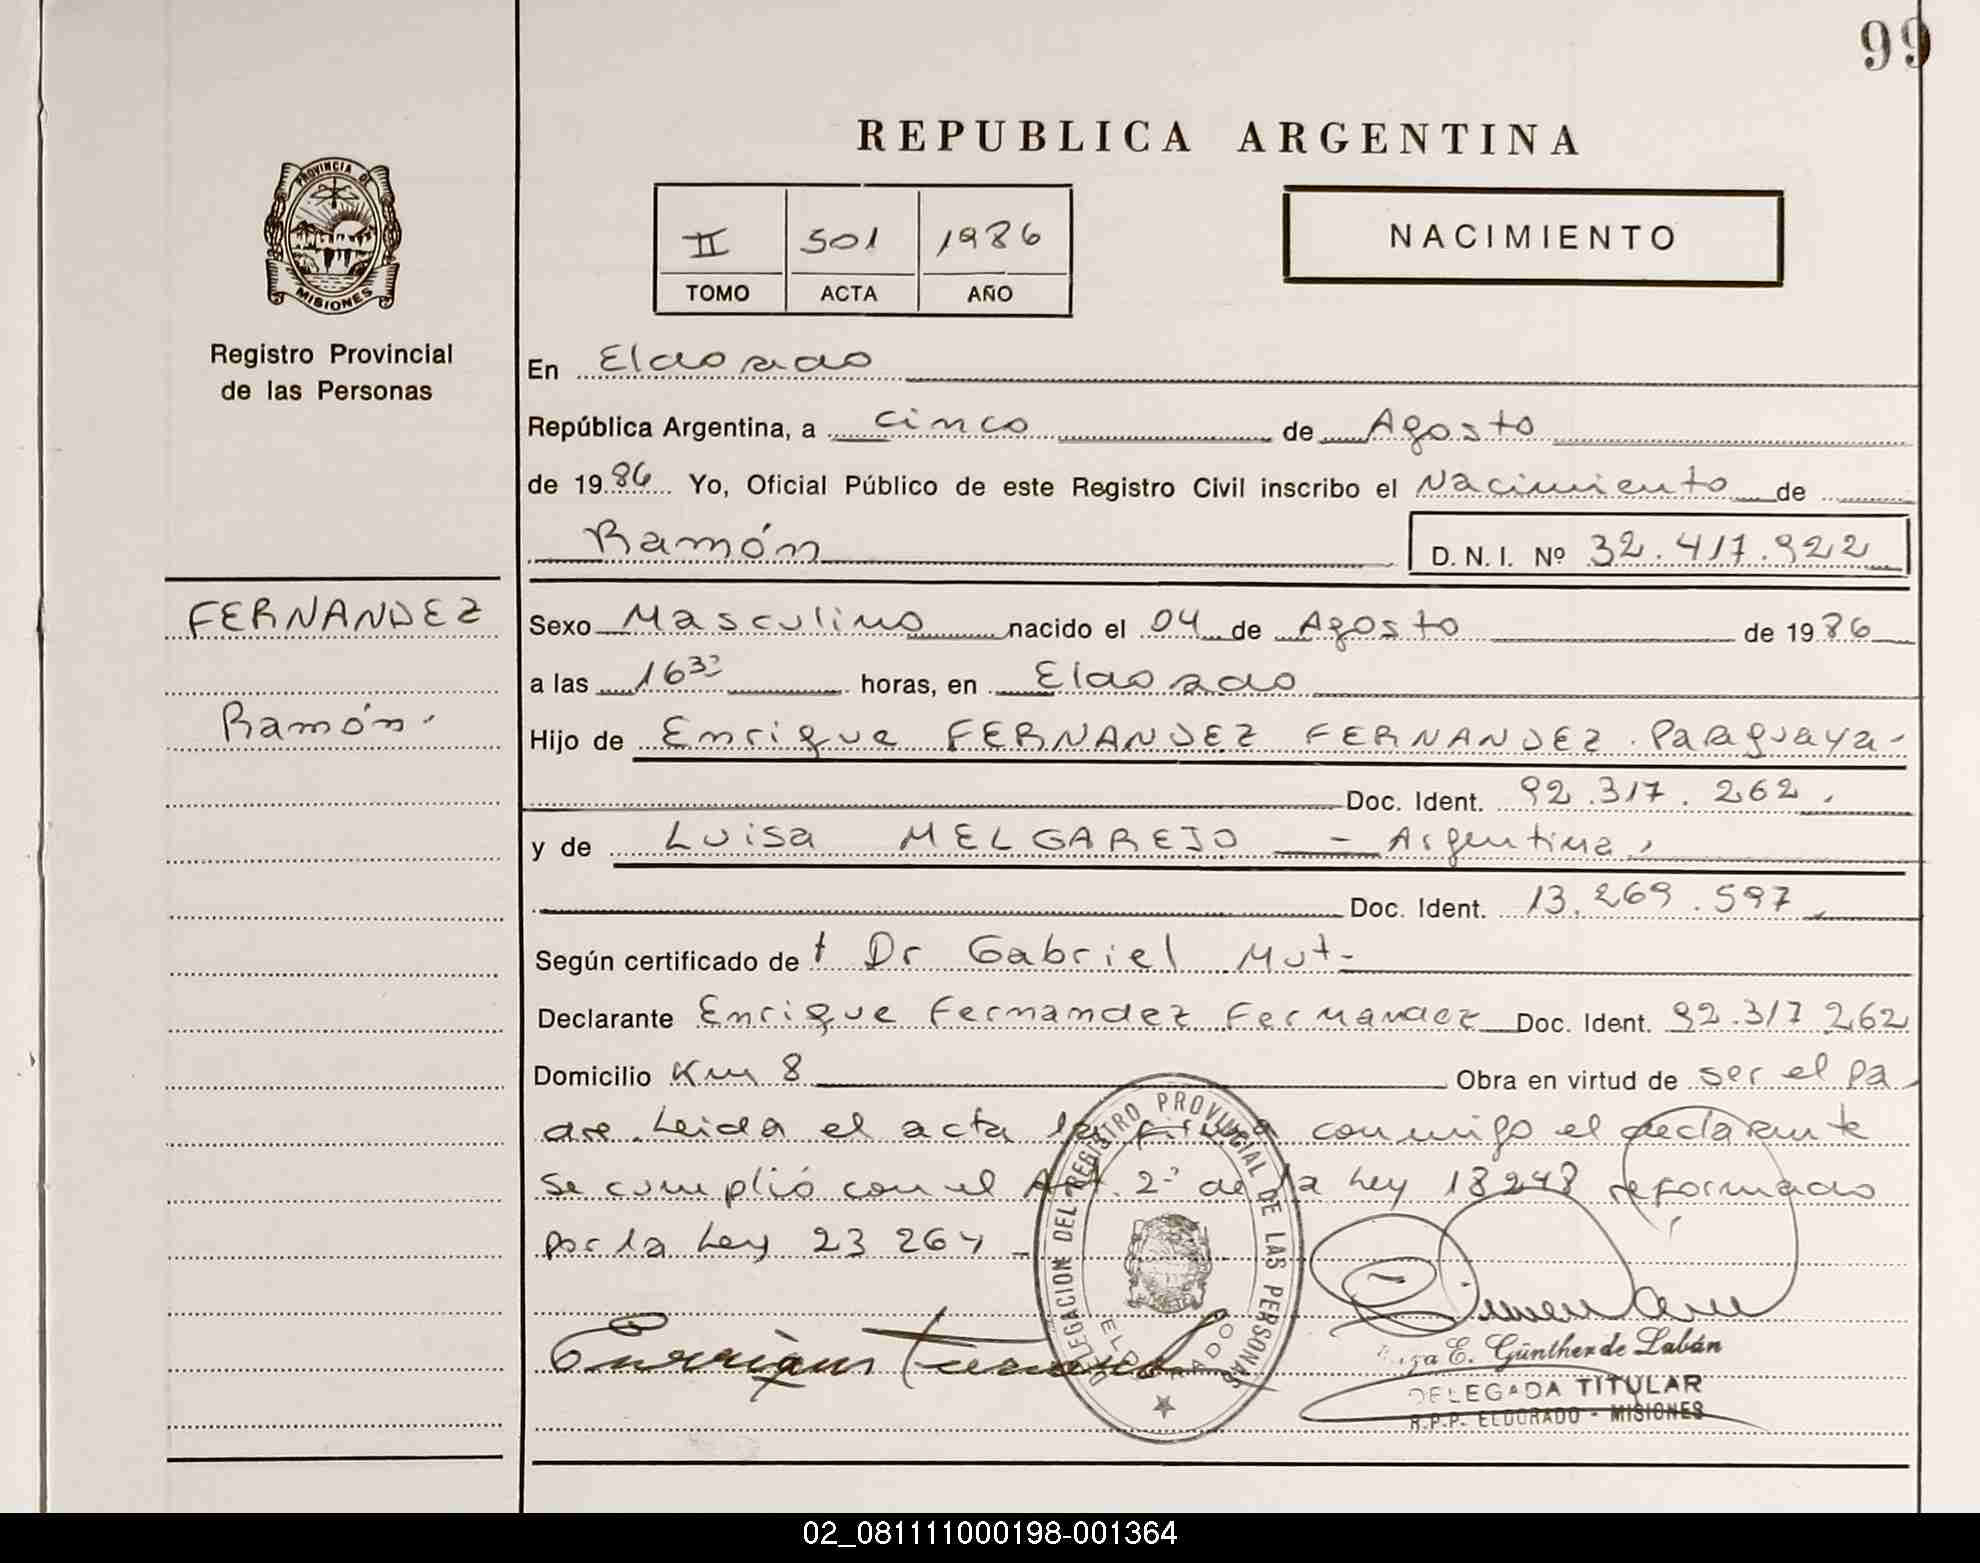 99
REPUBLICA ARGENTINA
PROVINCIA DE
MISIONES
II 501 1986
TOMO ACTA AÑO
NACIMIENTO
Registro Provincial
de las Personas
En Eldorado
República Argentina, a cinco de Agosto
de 1986 Yo, Oficial Público de este Registro Civil inscribo el Nacimiento de
Ramón D. N. I. Nº 32.417.922
FERNANDEZ
Ramón.
Sexo Masculino nacido el 04 de Agosto de 1986
a las 16 horas, en Eldorado
Hijo de Enrique FERNANDEZ FERNANDEZ. Paraguaya-
Doc. Ident. 92.317.262.
y de Luisa MELGAREJO - Argentina.
Doc. Ident. 13.269.597.
Según certificado de Dr Gabriel Mut-
Declarante Enrique Fernandez Fernandez Doc. Ident. 92.317.262
Domicilio Km 8 Obra en virtud de ser el pa
dre. Leida el acta la firma conmigo el declarante
se cumplió con el Art. 2º de la Ley 18248 reformado
por la Ley 23264 -
DELEGACION DEL REGISTRO PROVINCIAL DE LAS PERSONAS
ELDORADO
E. Günther de Labán
DELEGADA TITULAR
R.P.P. ELDORADO - MISIONES
02_081111000198-001364